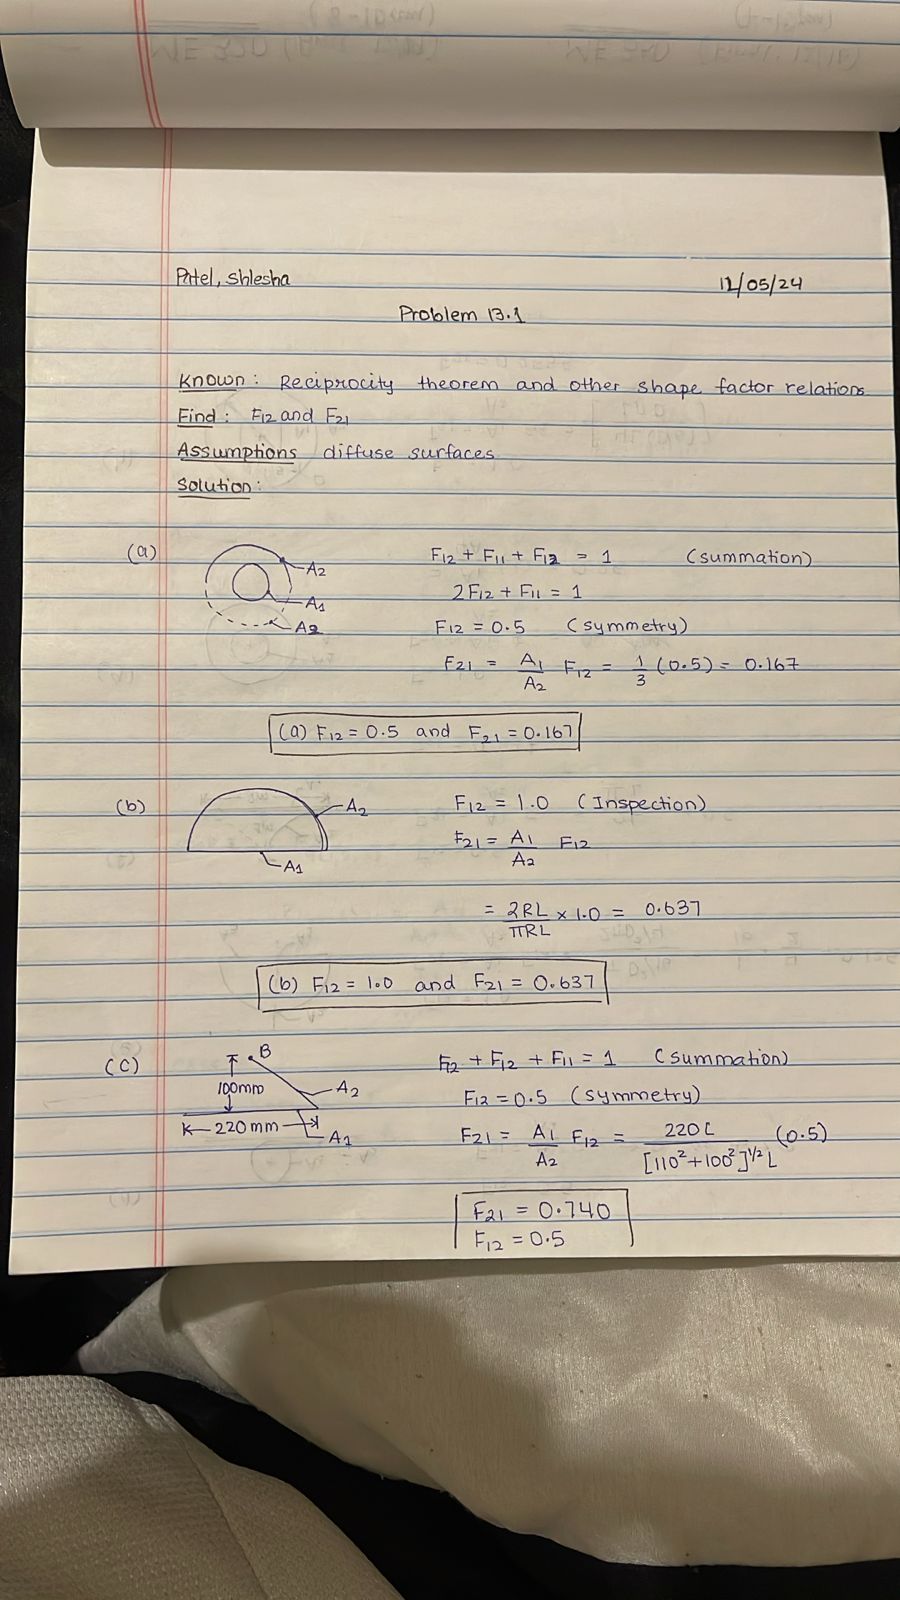 Patel, Shlesha 12/05/24
Problem 13.1
Known: Reciprocity theorem and other shape factor relations
Find: F12 and F21
Assumptions diffuse surfaces
Solution:
(a) A2 F12 + F11 + F12 = 1 (summation)
A1 2F12 + F11 = 1
A2 F12 = 0.5 (symmetry)
F21 = A1/A2 F12 = 1/3 (0.5) = 0.167
(a) F12 = 0.5 and F21 = 0.167
(b) A2 F12 = 1.0 (Inspection)
A1 F21 = A1/A2 F12
= 2RL/πRL × 1.0 = 0.637
(b) F12 = 1.0 and F21 = 0.637
(C) B F12 + F12 + F11 = 1 (summation)
100mm A2 F12 = 0.5 (symmetry)
220mm A1 F21 = A1/A2 F12 = 220L/[110²+100²]^1/2 L (0.5)
F21 = 0.740
F12 = 0.5